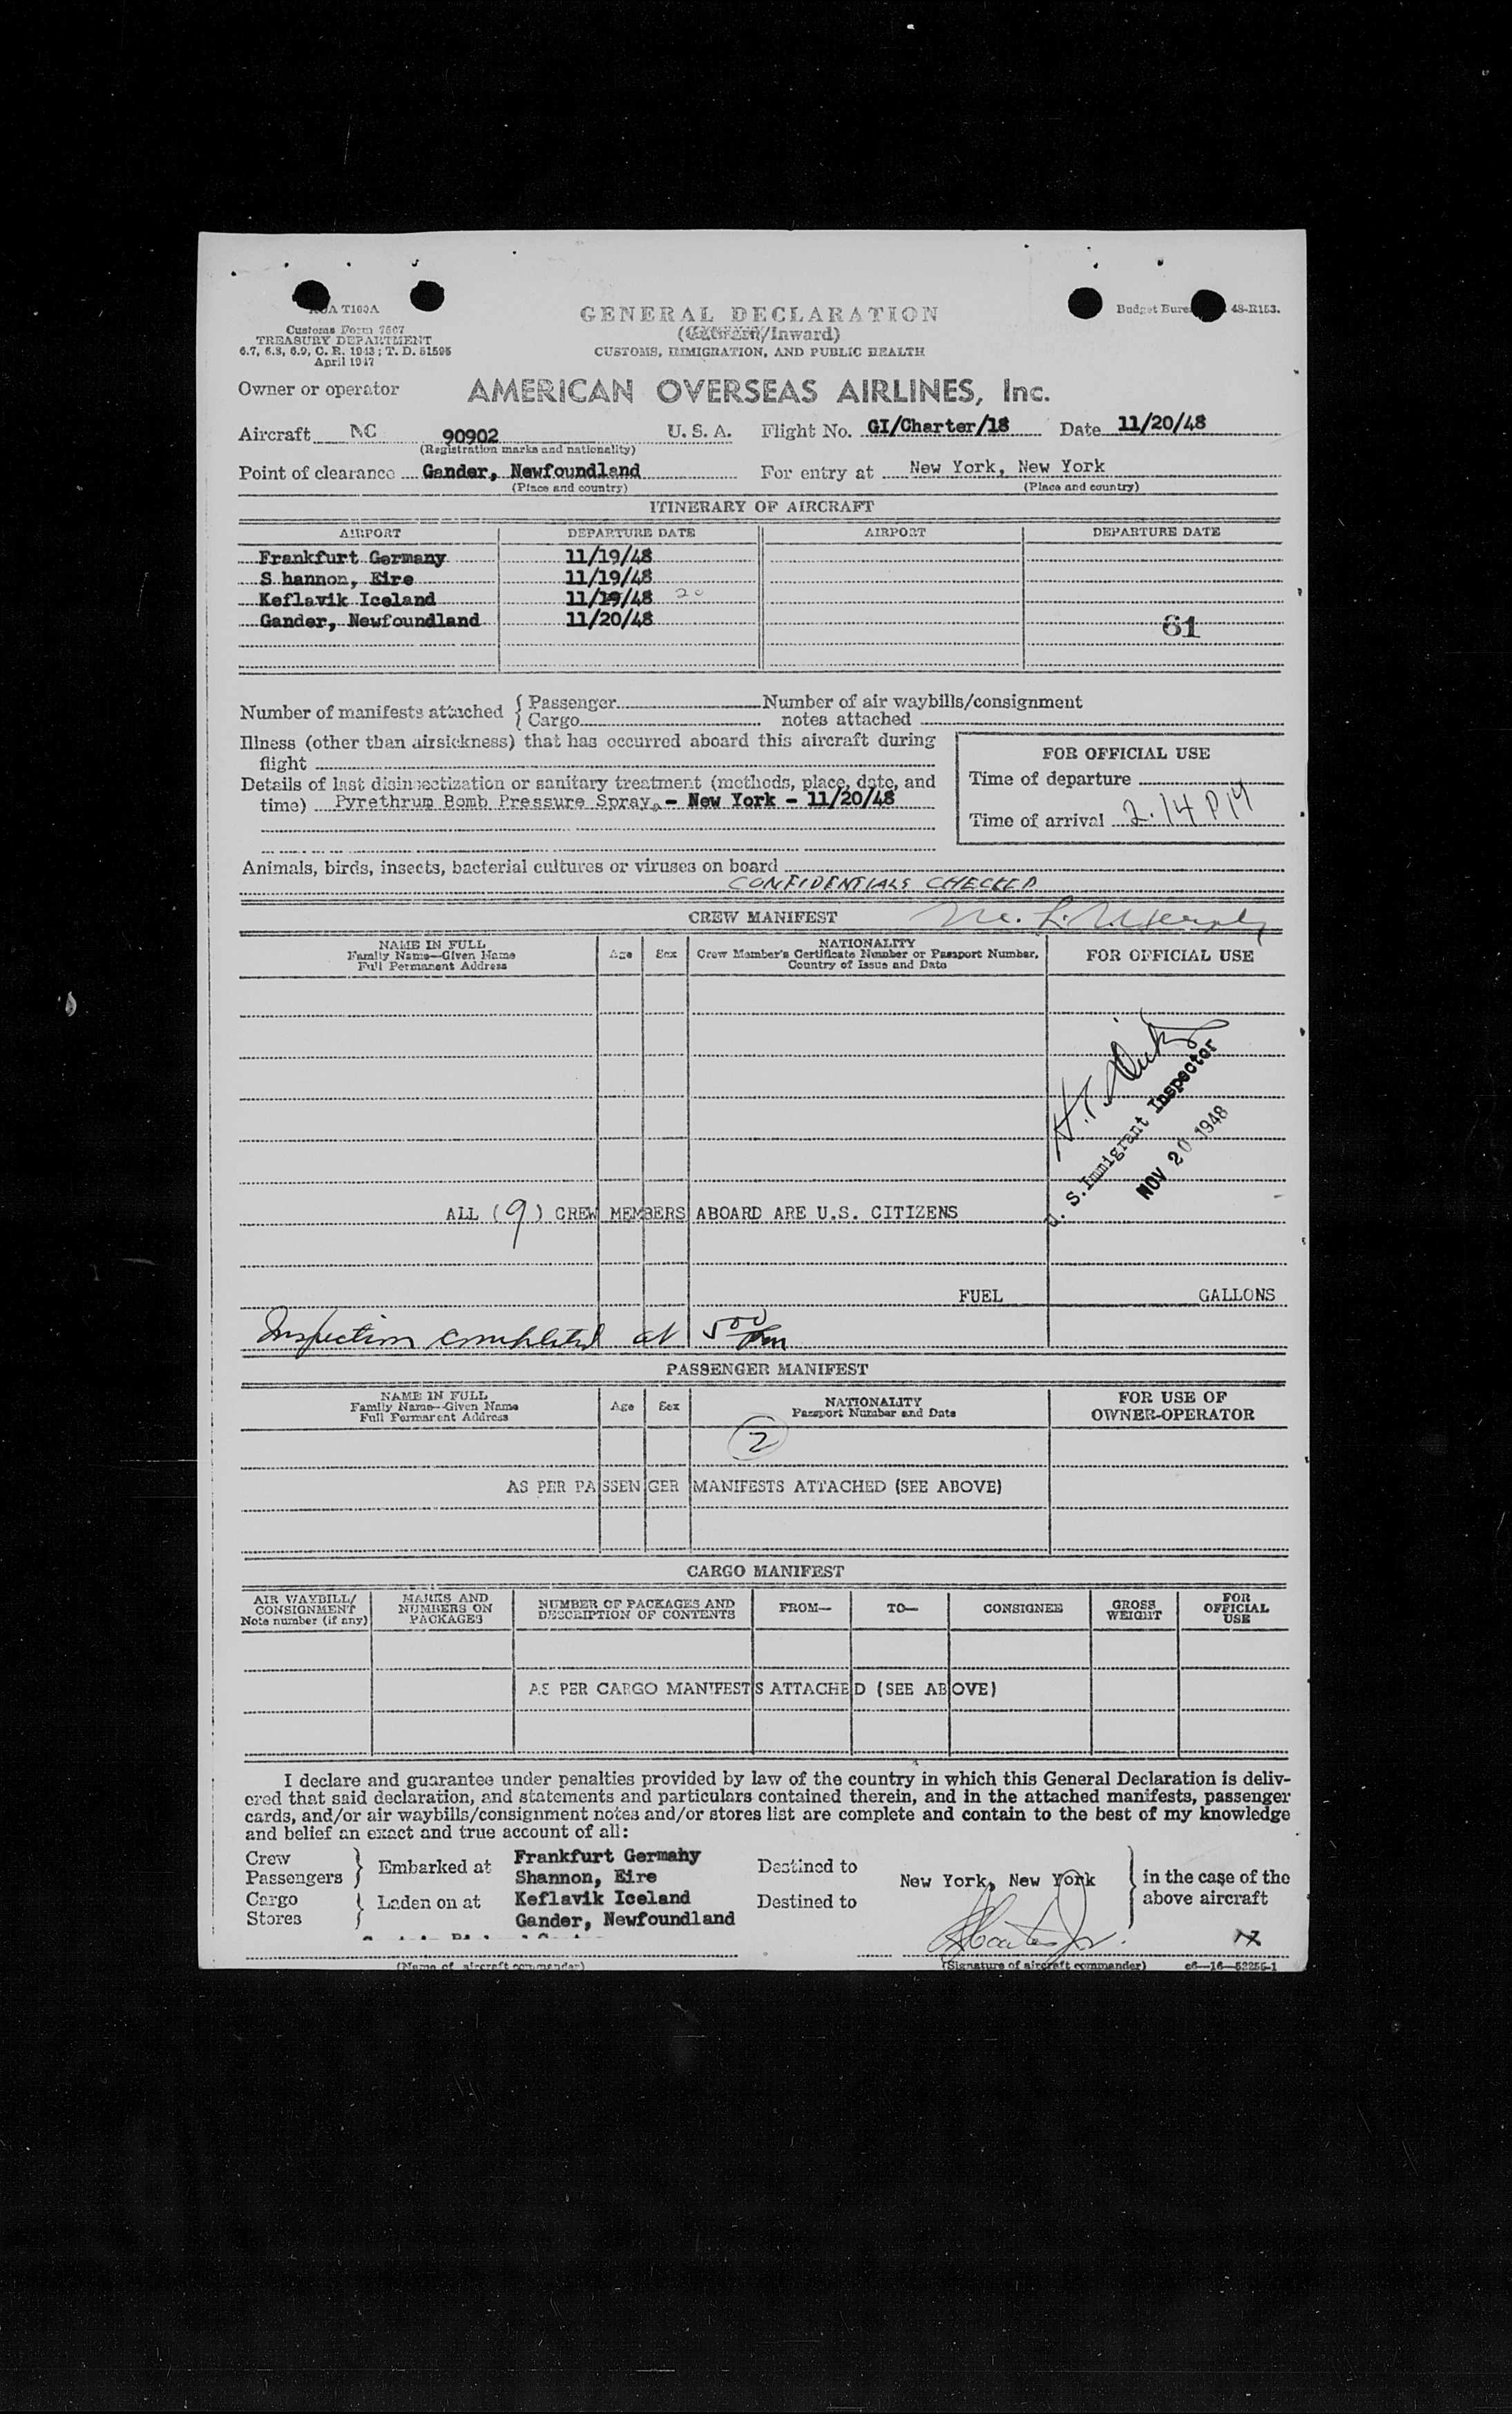 AOA T100A
Customs Form 7507
TREASURY DEPARTMENT
6.7, 6.8, 6.9, C. R. 1943; T. D. 51595
April 1947
GENERAL DECLARATION
(Outward/Inward)
CUSTOMS, IMMIGRATION, AND PUBLIC HEALTH
Budget Bureau 48-R153.
Owner or operator AMERICAN OVERSEAS AIRLINES, Inc.
Aircraft NC 90902 U. S. A. Flight No. GI/Charter/18 Date 11/20/48
(Registration marks and nationality)
Point of clearance Gander, Newfoundland For entry at New York, New York
(Place and country) (Place and country)
ITINERARY OF AIRCRAFT
AIRPORT DEPARTURE DATE AIRPORT DEPARTURE DATE
Frankfurt Germany 11/19/48
S hannon, Eire 11/19/48
Keflavik Iceland 11/19/48 20
Gander, Newfoundland 11/20/48
61
Number of manifests attached { Passenger
{ Cargo
Number of air waybills/consignment
notes attached
Illness (other than airsickness) that has occurred aboard this aircraft during
flight
Details of last disinsectization or sanitary treatment (methods, place, date, and
time) Pyrethrum Bomb Pressure Spray. - New York - 11/20/48
FOR OFFICIAL USE
Time of departure
Time of arrival 2.14 PM
Animals, birds, insects, bacterial cultures or viruses on board
CONFIDENTIALS CHECKED
CREW MANIFEST
NAME IN FULL
Family Name—Given Name
Full Permanent Address
Age Sex
NATIONALITY
Crew Member's Certificate Number or Passport Number,
Country of Issue and Date
FOR OFFICIAL USE
U. S. Immigrant Inspector
NOV 20 1948
ALL (9) CREW MEMBERS ABOARD ARE U.S. CITIZENS
FUEL GALLONS
Inspection completed at 500 pm
PASSENGER MANIFEST
NAME IN FULL
Family Name—Given Name
Full Permanent Address
Age Sex
NATIONALITY
Passport Number and Date
FOR USE OF
OWNER-OPERATOR
2
AS PER PASSENGER MANIFESTS ATTACHED (SEE ABOVE)
CARGO MANIFEST
AIR WAYBILL/
CONSIGNMENT
Note number (if any)
MARKS AND
NUMBERS ON
PACKAGES
NUMBER OF PACKAGES AND
DESCRIPTION OF CONTENTS
FROM— TO— CONSIGNEE
GROSS
WEIGHT
FOR
OFFICIAL
USE
AS PER CARGO MANIFESTS ATTACHED (SEE ABOVE)
I declare and guarantee under penalties provided by law of the country in which this General Declaration is deliv-
ered that said declaration, and statements and particulars contained therein, and in the attached manifests, passenger
cards, and/or air waybills/consignment notes and/or stores list are complete and contain to the best of my knowledge
and belief an exact and true account of all:
Crew
Passengers } Embarked at
Cargo
Stores } Laden on at
Frankfurt Germany
Shannon, Eire
Keflavik Iceland
Gander, Newfoundland
Destined to
Destined to
New York, New York
in the case of the
above aircraft
(Name of aircraft commander) (Signature of aircraft commander) c6—16—52255-1